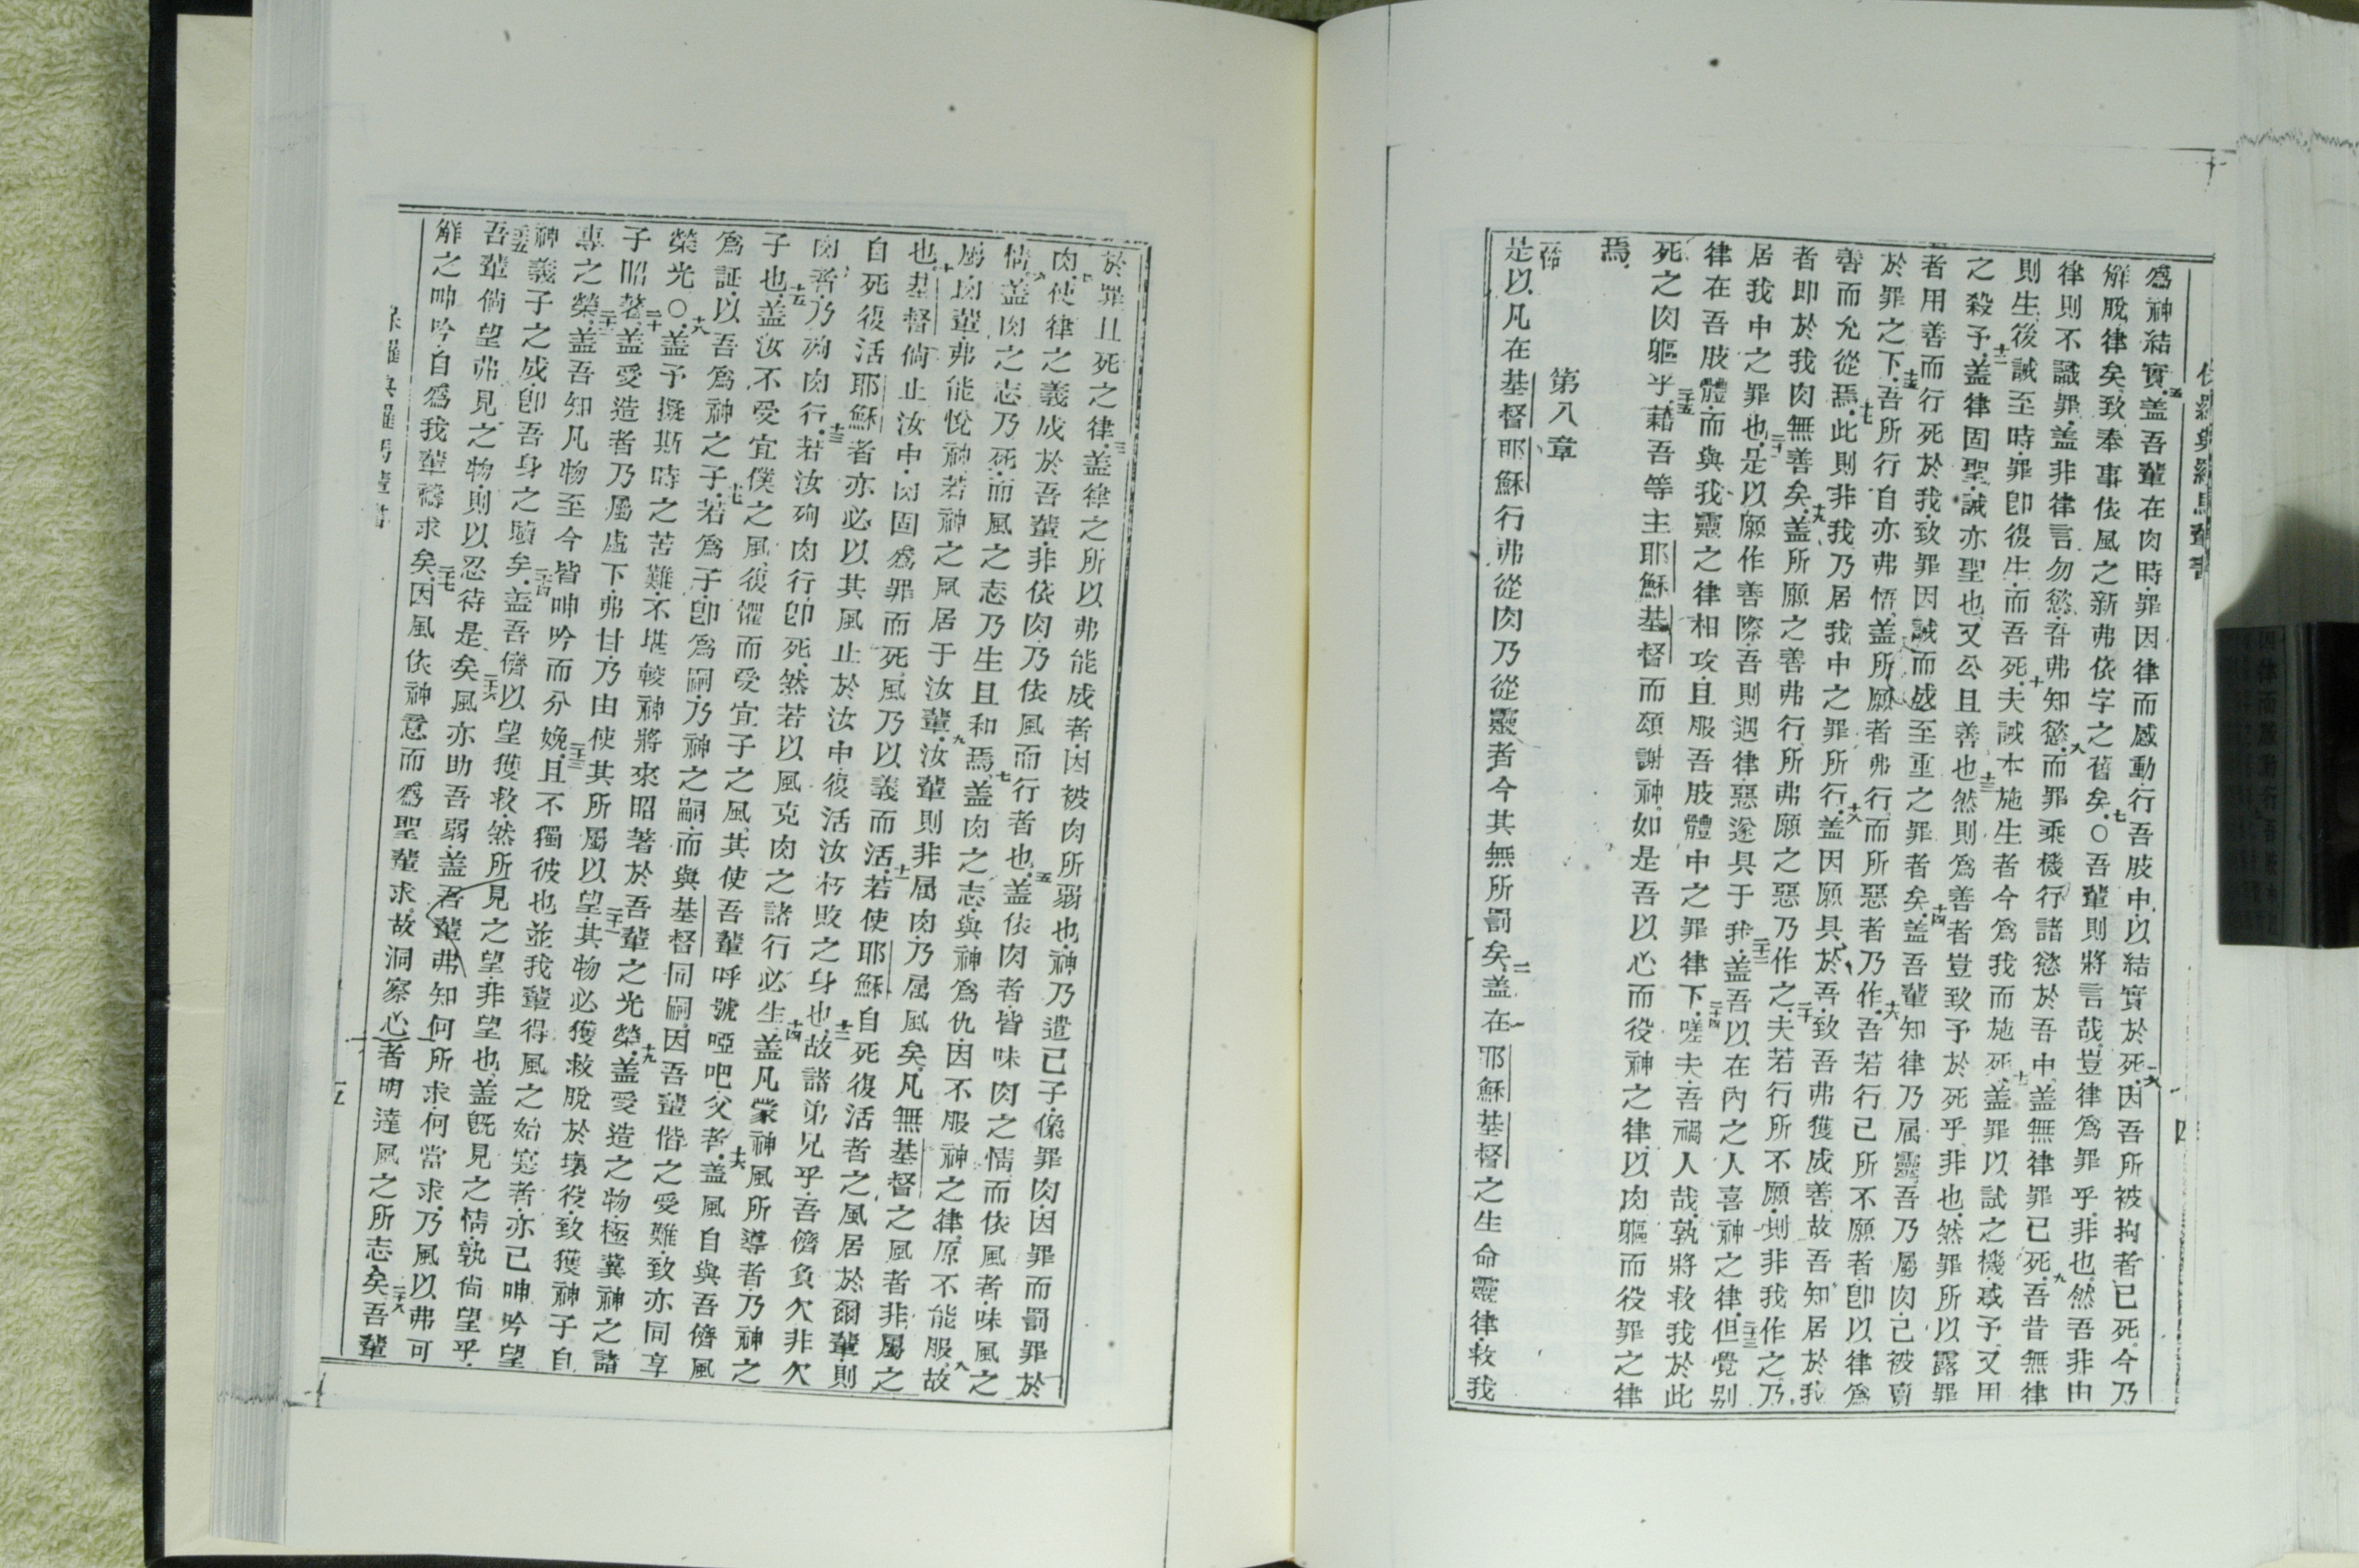 保羅與羅馬輩書
四
爲神結實五盖吾輩在肉時罪因律而感動行吾肢中以結實於死六因吾所被拘者已死今乃
解脫律矣致奉事依風之新弗依字之舊矣七○吾輩則將言哉豈律爲罪乎非也然吾非由
律則不識罪盖非律言勿慾吾弗知慾八而罪乘機行諸慾於吾中盖無律罪已死九吾昔無律
則生後誡至時罪卽復生而吾死十夫誡本施生者今爲我而施死十一盖罪以試之機惑予又用
之殺予十二盖律固聖誡亦聖也又公且善也十三然則爲善者豈致予於死乎非也然罪所以露罪
者用善而行死於我致罪因誡而感至重之罪者矣十四盖吾輩知律乃属靈吾乃屬肉己被賣
於罪之下十五吾所行自亦弗悟盖所願者弗行而所惡者乃作十六吾若行己所不願者卽以律爲
善而允從焉十七此則非我乃居我中之罪所行十八盖因願具於吾致吾弗獲成善故吾知居於我
者即於我肉無善矣十九盖所願之善弗行所弗願之惡乃作之二十夫若行所不願則非我作之乃
居我中之罪也二十一是以願作善際吾則遇律惡遂具于我二十二盖吾以在內之人喜神之律二十三但覺别
律在吾肢體而與我靈之律相攻且服吾肢體中之罪律下二十四嗟夫吾禍人哉孰將救我於此
死之肉軀乎二十五藉吾等主耶穌基督而頌謝神如是吾以心而役神之律以肉軀而役罪之律
焉
第八章
一節
是以凡在基督耶穌行弗從肉乃從靈者今其無所罰矣二盖在耶穌基督之生命靈律救我
於罪且死之律三盖律之所以弗能成者因被肉所弱也神乃遣己子像罪肉因罪而罰罪於
肉四使律之義成於吾輩非依肉乃依風而行者也五盖依肉者皆味肉之情而依風者味風之
情六盖肉之志乃死而風之志乃生且和焉七盖肉之志與神爲仇因不服神之律原不能服八故
屬肉輩弗能悅神若神之風居于汝輩九汝輩則非屬肉乃属風矣凡無基督之風者非屬之
也十基督倘止汝中肉固爲罪而死風乃以義而活十一若使耶穌自死復活者之風居於爾輩則
自死復活耶穌者亦必以其風止於汝中復活汝朽敗之身也十二故諸弟兄乎吾儕負欠非欠
肉者乃殉肉行十三若汝殉肉行卽死然若以風克肉之諸行必生十四盖凡蒙神風所導者乃神之
子也十五盖汝不受宜僕之風復懼而受宜子之風其使吾輩呼號啞吧父者十六盖風自與吾儕風
爲証以吾爲神之子十七若爲子卽爲嗣乃神之嗣而與基督同嗣因吾輩偕之受難致亦同享
榮光○十八盖予擬斯時之苦難不堪較神將來昭著於吾輩之光榮十九盖受造之物極冀神之諸
子昭著二十盖受造者乃屬虛下弗甘乃由使其所屬以望二十一其物必獲救脫於壞役致獲神子自
專之榮二十二盖吾知凡物至今皆呻吟而分娩二十三且不獨彼也並我輩得風之始寔者亦己呻吟望
神義子之成卽吾身之贖矣二十四盖吾儕以望獲救然所見之望非望也盖旣見之情孰倘望乎
二十五吾輩倘望弗見之物則以忍待是矣二十六風亦助吾弱盖吾輩弗知何所求何當求乃風以弗可
觧之呻吟自爲我輩禱求矣二十七因風依神意而爲聖輩求故洞察心者明達風之所志矣二十八吾輩
保羅與羅馬輩書
五